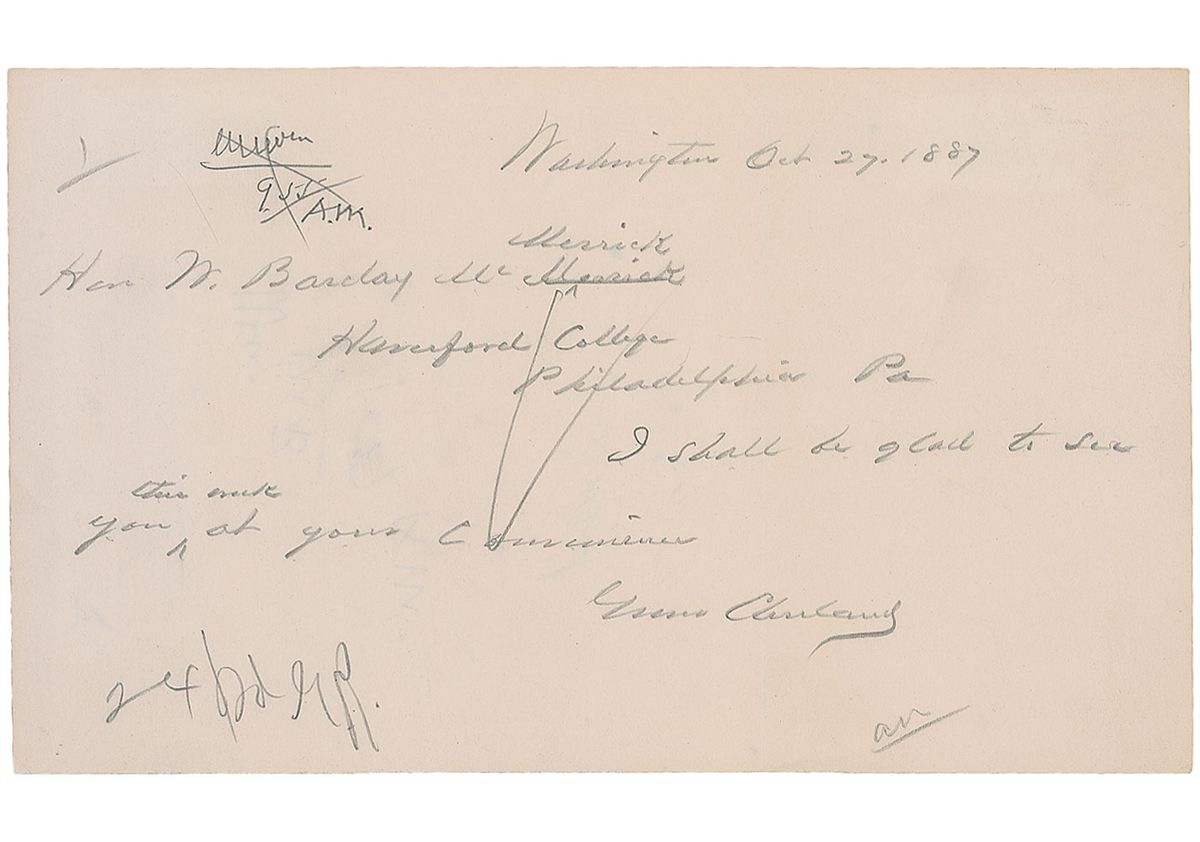 9.55
A.M.
Washington Oct 27. 1887
Merrick
Hon W. Barclay Mc Merrick
Haverford College
Philadelphia Pa
I shall be glad to see
this week
you ^ at your Convenience
Grover Cleveland
24 Pd